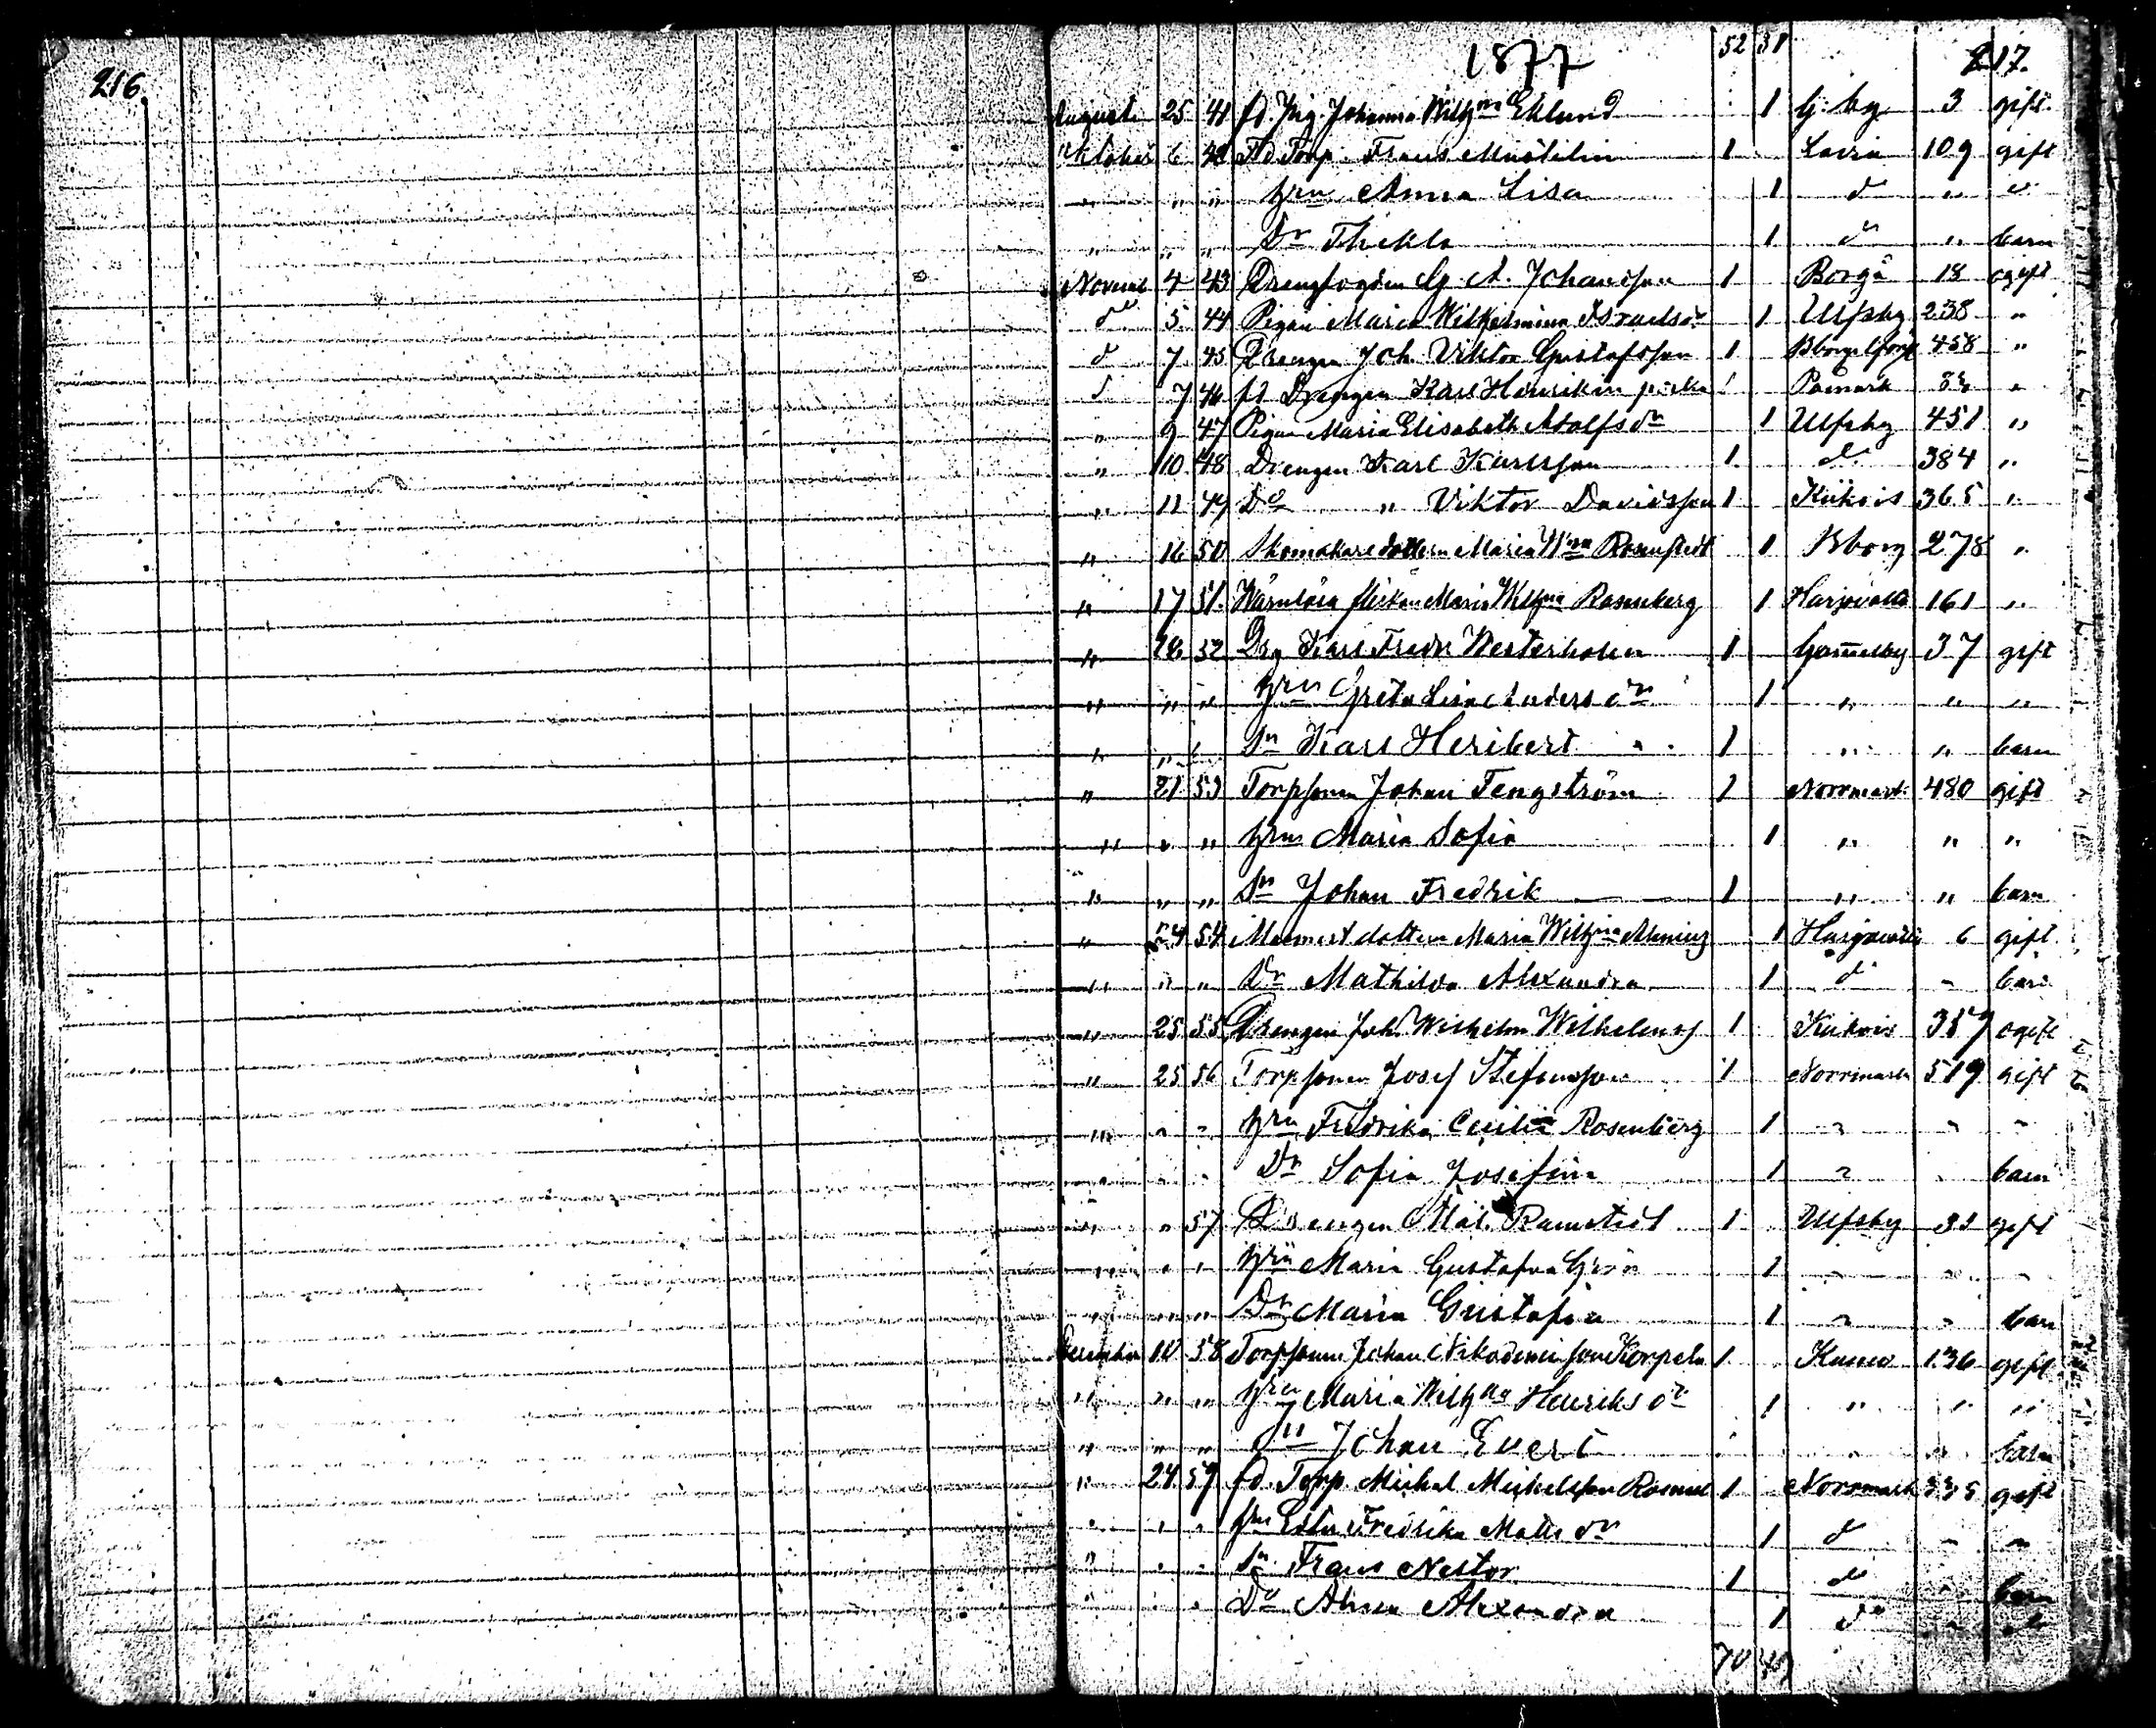 216.
1877 52 217.
Augusti 25 41 fd. Pig. Johanna Wilh:na Eklund 1 G. by 3 gift
Oktober 6 42 Fd Torp. Frans Mustelin 1 Lavia 109 gift
" " " hru Anna Lisa 1 d " "
" " " Dr Thekla 1 d " barn
Novemb 4 43 Drengfogden G. A. Johansson 1 Borgå 18 ogift
d 5 44 Pigan Maria Wilhelmina Israelsdr 1 Ulfsby 238 "
d 7 45 Drengen Joh Viktor Gustafsson 1 458 "
d 7 46 fd Drengen Karl Henrikin 1 Pomark "
" 9 47 Pigan Maria Elisabeth Adolfsdr 1 Ulfsby 451 "
" 10 48 Drengen Karl Karlsson 1 d 384 "
" 11 49 Do " Viktor Davidsson 1 Kiikois 365 "
" 16 50 Skomakaredottern Maria W:na Rosenstedt 1 Bborg 278 "
" 17 51 Wärnlösa flickan Maria Wilh:na Rosenberg 1 Harjavalta 161 "
" 52 Drg Karl Fredr Westerholm 1 Gammelby 37 gift
" " " hru Greta Lisa Andersdr 1 " " "
" " " Sn Karl Heribert 1 " " barn
" 21 53 Torpsonen Johan Tengström 1 Norrmark 480 gift
" " " hru Maria Sofia 1 " " "
" " " Sn Johan Fredrik 1 " " barn
" 24 54 dottern Maria Wilh:na 1 Harjavalta 6 gift
" " " Dr Mathilda Alexandra 1 d " barn
" 25 55 Drengen Joh. Wilhelm Wilhelmss 1 Kiikois 387 ogift
" 25 56 Torpsonen Josef Stefansson 1 Norrmark 519 gift
" " " hru Fredrika Cecilia Rosenberg 1 " " "
" " " Dr Sofia Josefina 1 " " barn
" " 57 Drengen Mat. Ramstedt 1 Ulfsby gift
" " " hru Maria Gustafva Grön 1 " " "
" " " Dr Maria Gustafva 1 " " barn
December 10 58 Torpsonen Johan Nikodemisson Korpela 1 136 gift
" " " hru Maria Wilh:na Henriksdr 1 " " "
" " " Sn Johan Evert " " barn
" 24 59 fd. Torp. Mickel Mickelsson 1 Norrmark 335 gift
" " " hru Ester Fredrika Matts dr 1 d " "
" " " Sn Frans Nestor 1 d " barn
" " " Dr Alma Alexandra 1 do " do
70